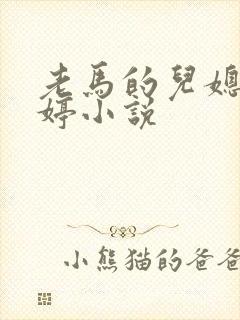 老馬的兒媳
婷小說
小熊猫的爸爸